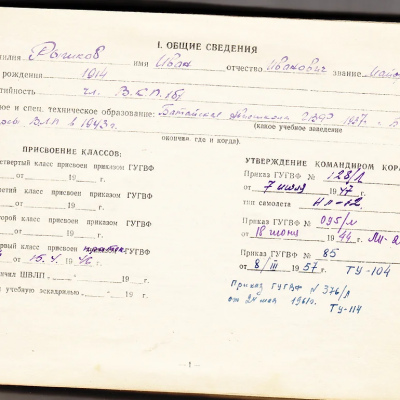 I. ОБЩИЕ СВЕДЕНИЯ
милия Рышков имя Иван отчество Иванович звание Майор
рождения 1914
тийность чл. ВКП(б)
ое и спец. техническое образование: Батайская 1937 г.
ВЛП в 1943 г. (какое учебное заведение
окончил где и когда).
ПРИСВОЕНИЕ КЛАССОВ:
етвертый класс присвоен приказом ГУГВФ
от 19 г.
етий класс присвоен приказом ГУГВФ
от 19 г.
орой класс присвоен приказом ГУГВФ
от 19 г.
рвый класс присвоен ГУГВФ
от 15.4. 1946 г.
нчил ШВЛП „ “ 19 г.
учебную эскадрилью „ “ 19 г.
УТВЕРЖДЕНИЕ КОМАНДИРОМ КОРА
Приказ ГУГВФ № 128/Л
от 7 июля 1947 г.
тип самолета ИЛ-12
Приказ ГУГВФ № 095/л
от 18 июня 1944 г. Ли-2
Приказ ГУГВФ № 85
от 8/III 1957 г. ТУ-104
Приказ ГУГВФ № 376/Л
от 24 мая 1961г.
ТУ-114
— 1 —